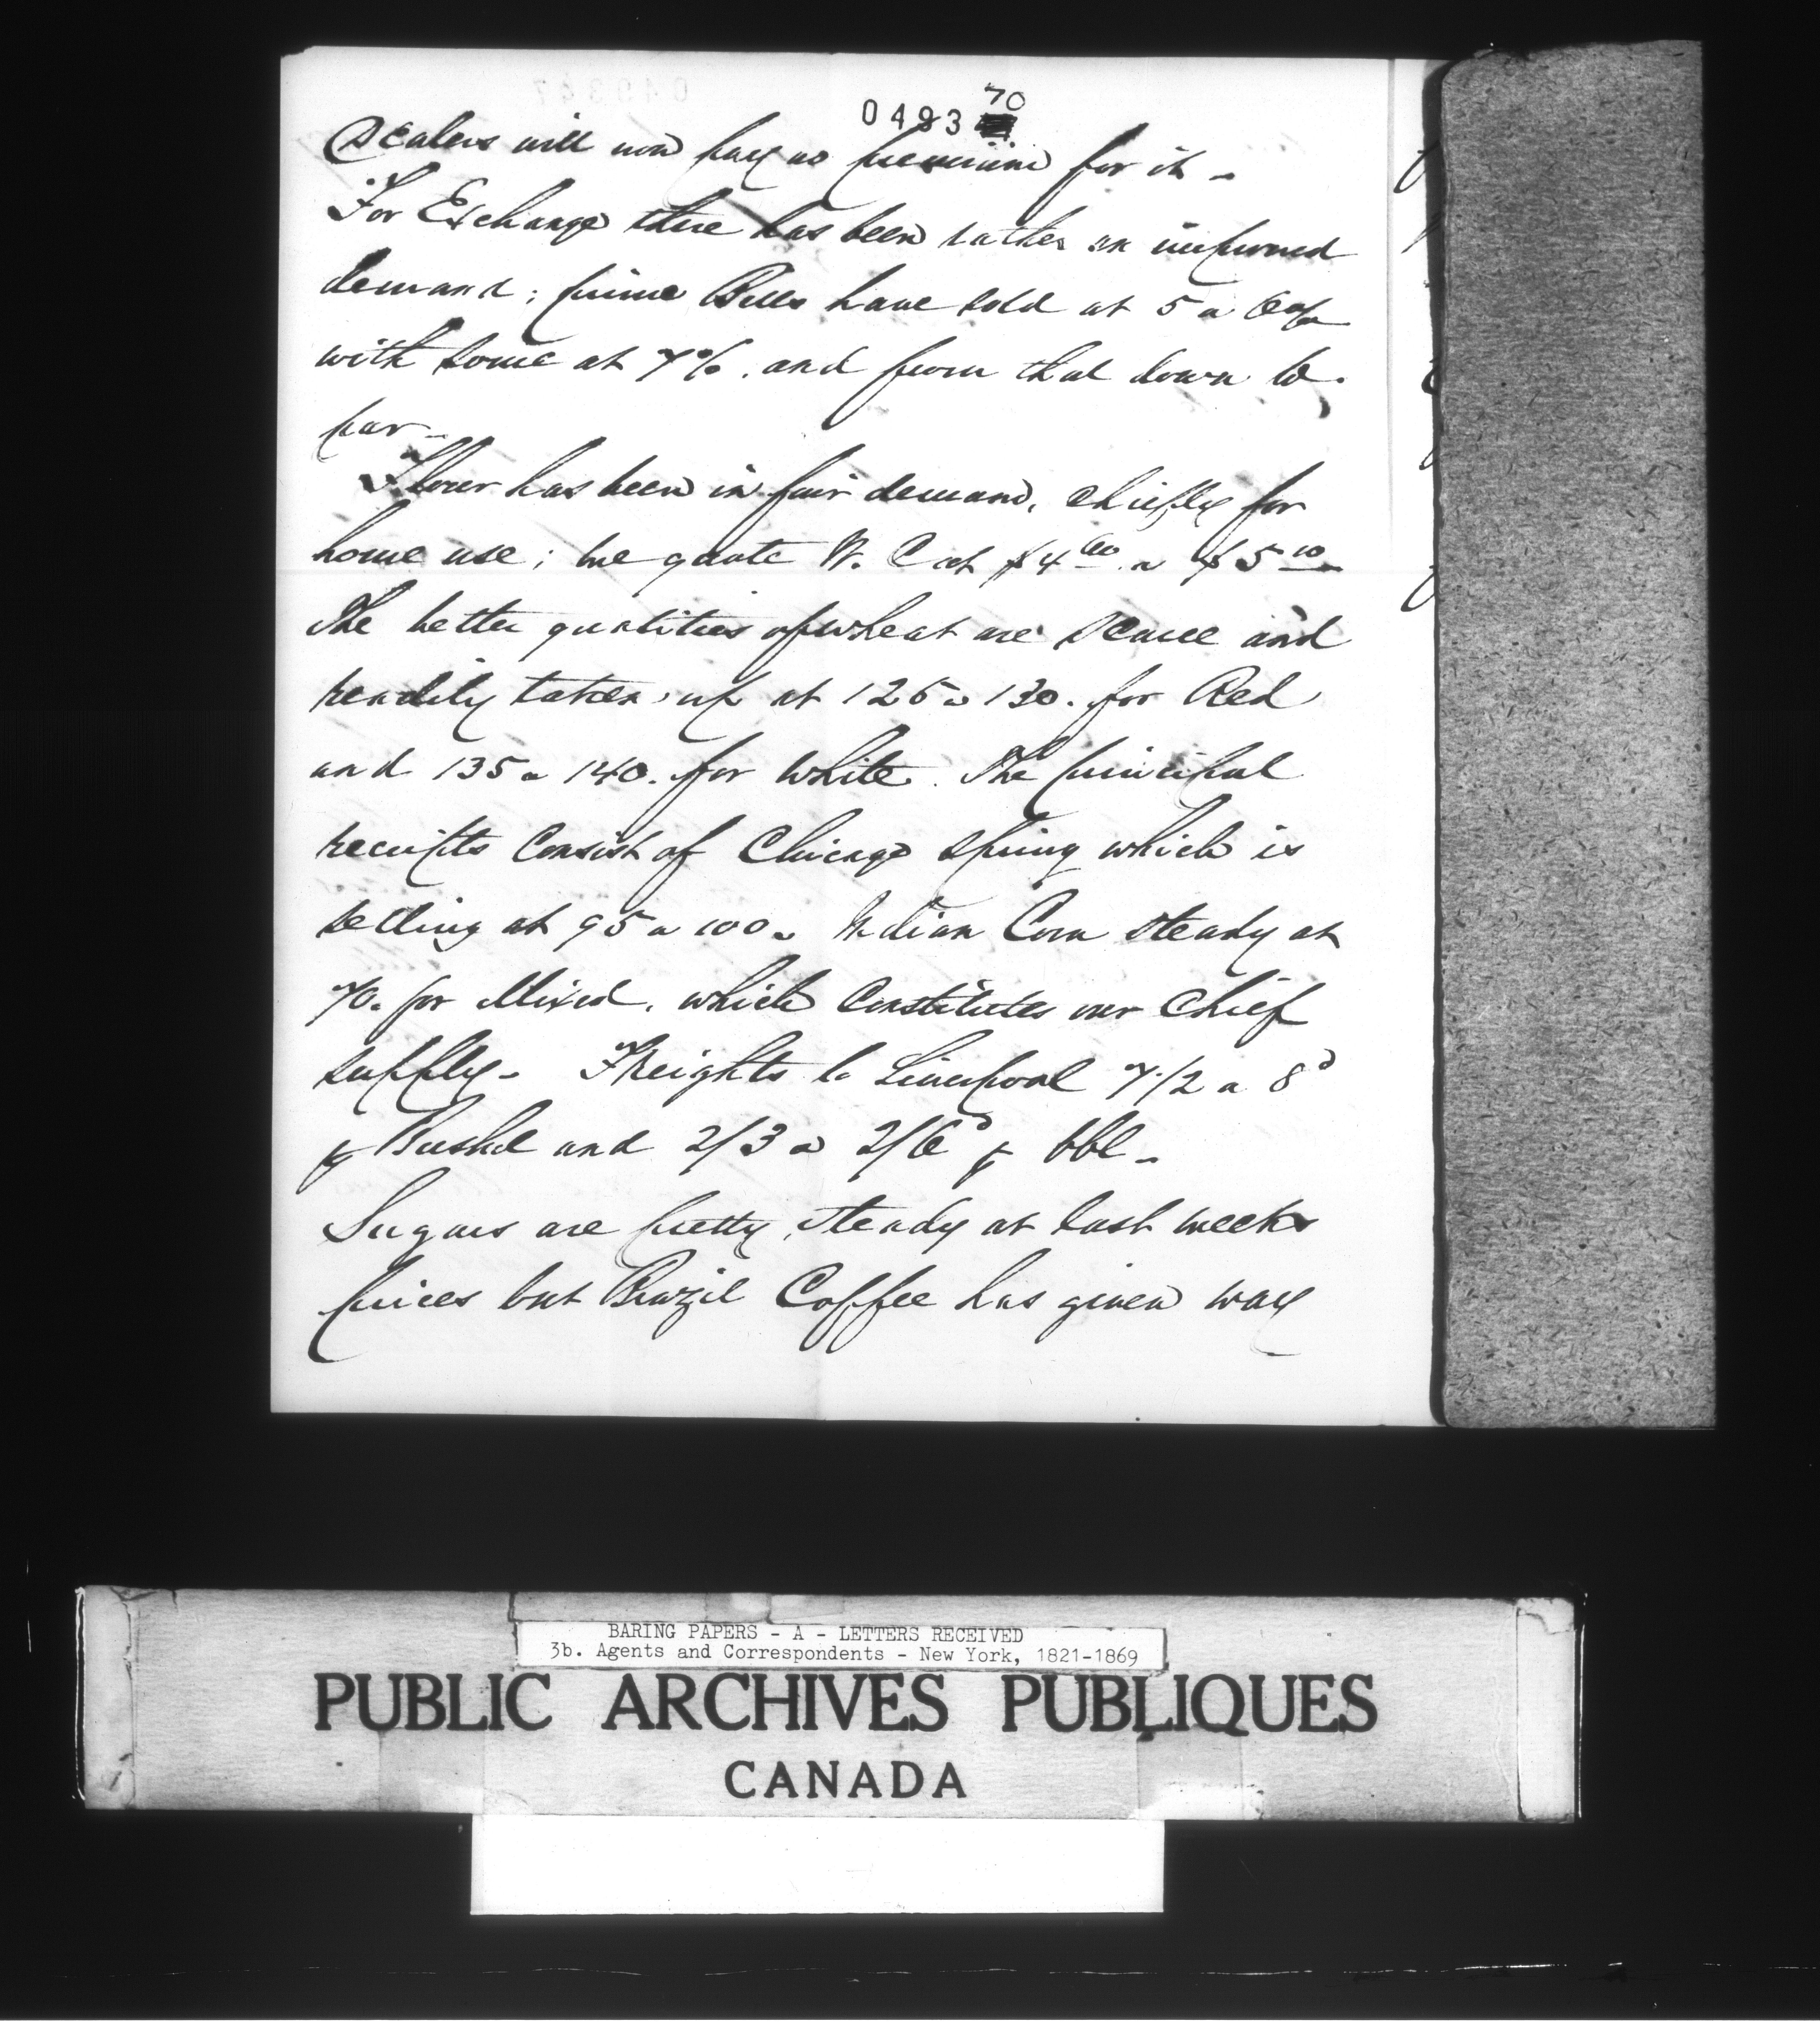 049370
Dealers will now pay no premium for it -
For Exchange there has been rather an improved
demand; prime Bills have sold at 5 a 6%
with some at 7%. and from that down to
par -
Flour has been in fair demand, chiefly for
home use; we quote W. C at $4 60 a $5 10
The better qualities of wheat are scarce and
readily taken up at 125 a 130. for Red
and 135 a 140. for White. The principal
receipts Consist of Chicago Spring which is
selling at 95 a 100 - Indian Corn steady at
70. for Mixed. which Constitutes our Chief
supply - Freights to Liverpool 7 1/2 a 8d
p Bushel and 2/3 a 2/6d p bbl -
Sugars are pretty steady at last weeks
prices but Brazil Coffee has given way
BARING PAPERS - A - LETTERS RECEIVED
3b. Agents and Correspondents - New York, 1821-1869
PUBLIC ARCHIVES PUBLIQUES
CANADA